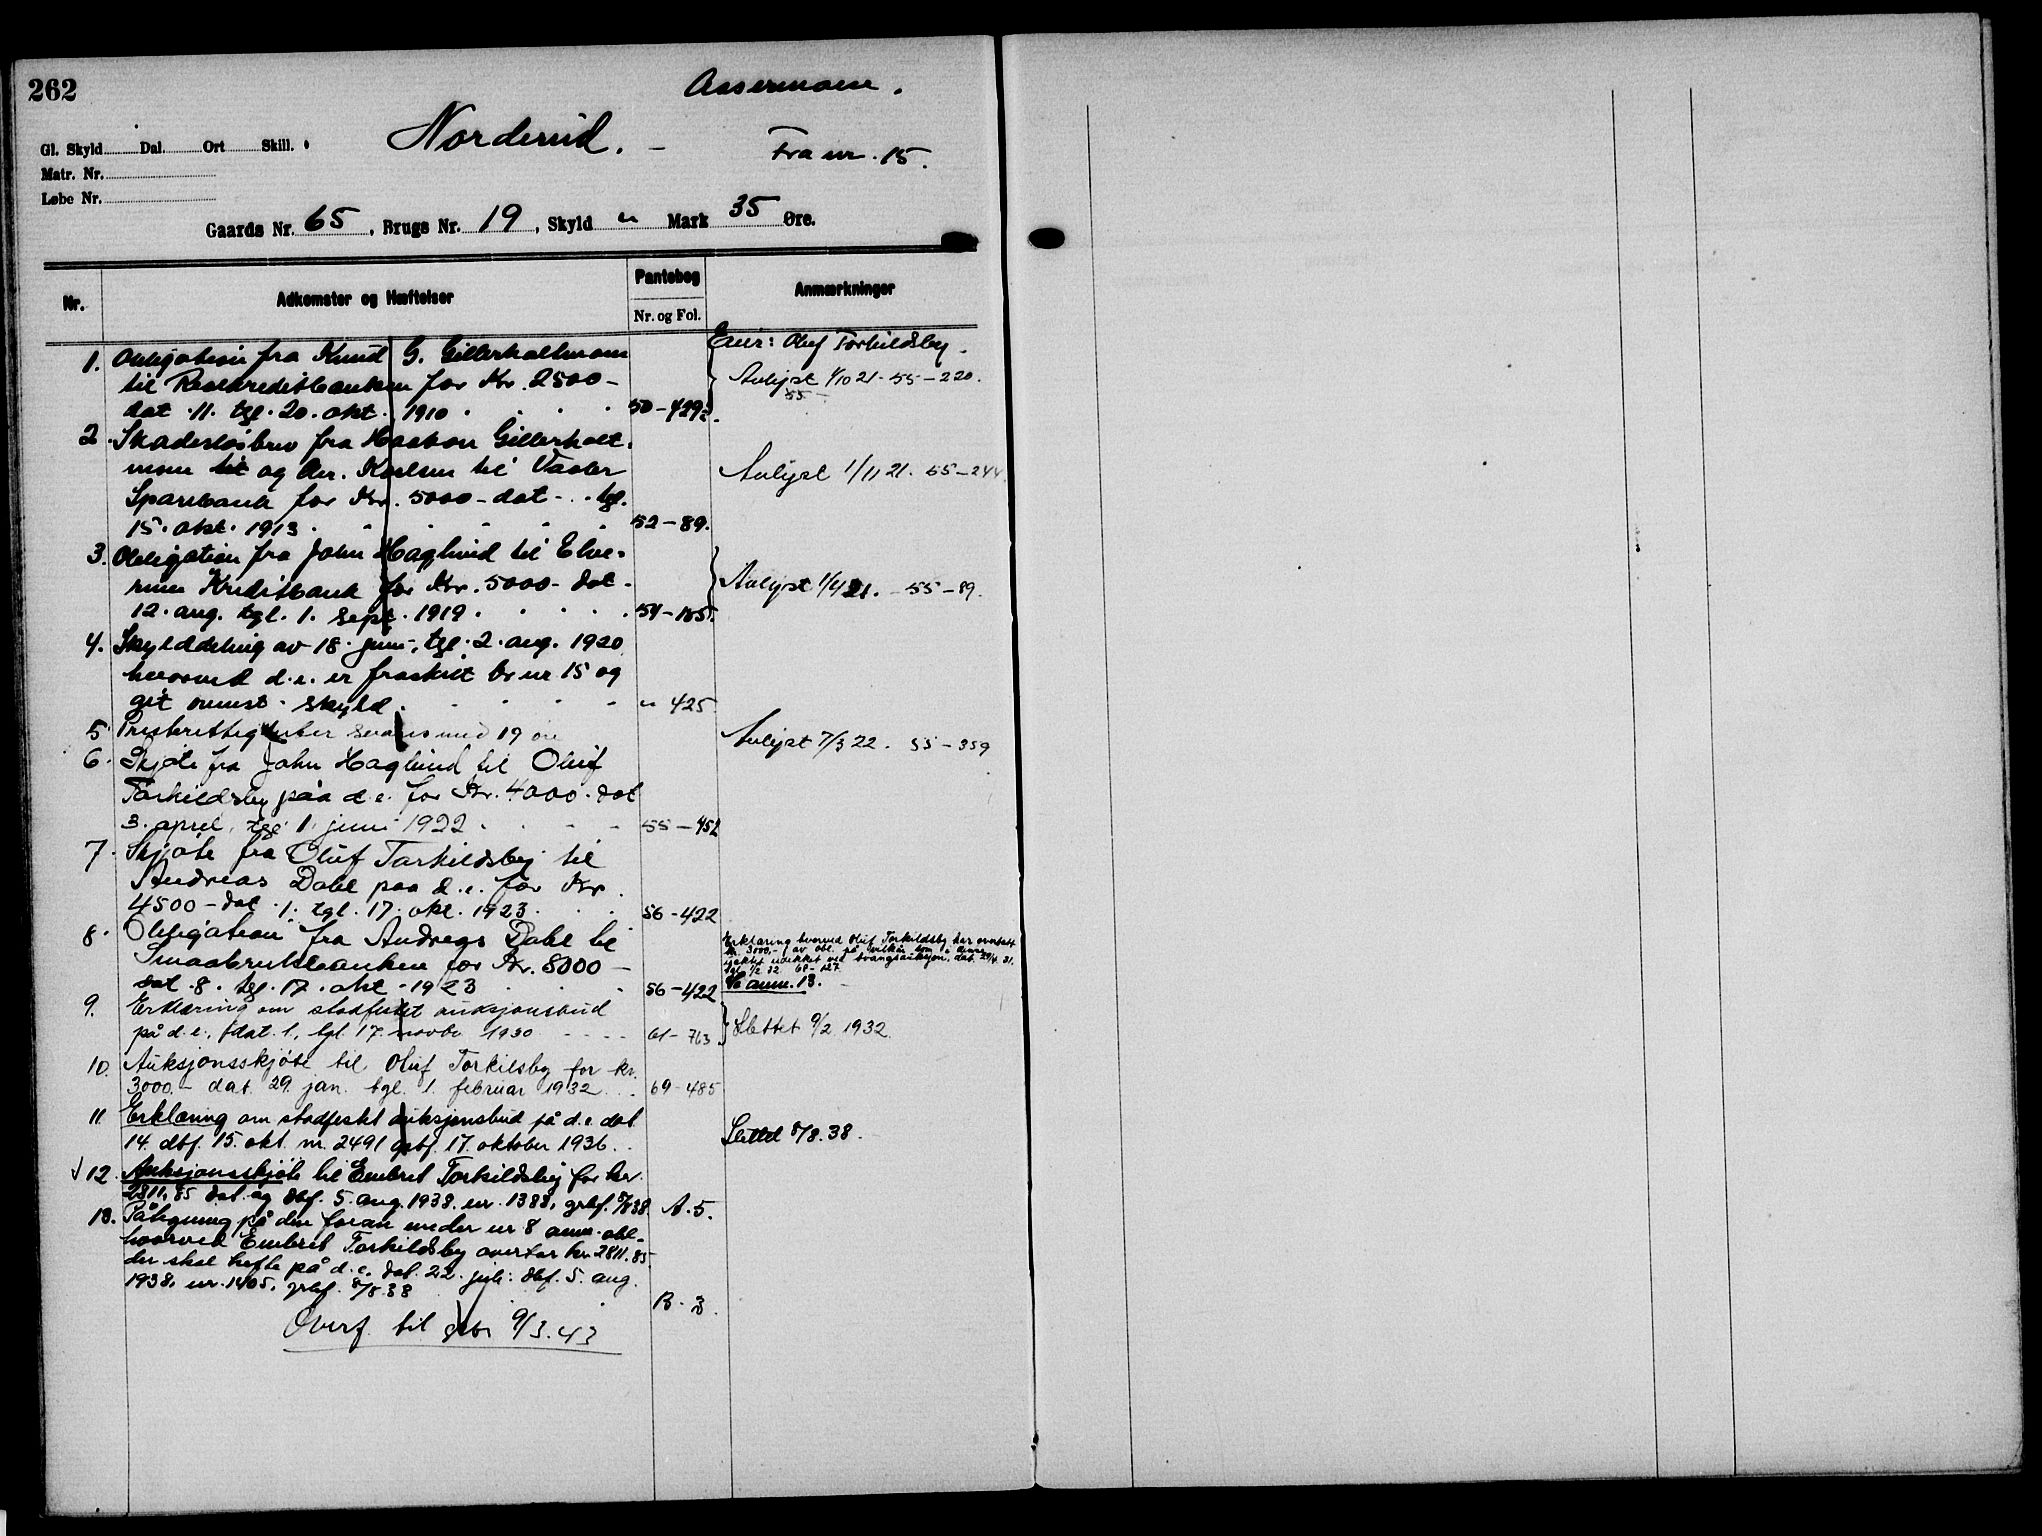 262
Aasermoen.
Norderud. –
Fra nr. 15.
Gl. Skyld Dal. Ort Skill.
Matr. Nr.
Løbe Nr.
Gaards Nr. 65, Brugs Nr. 19, Skyld „ Mark 35 Øre.
Nr. Adkomster og Hæftelser Pantebog Nr. og Fol. Anmærkninger
Eier: Oluf Torkildsby.
1. Obligation fra Knud G. Gillerholtmoen
til Realkreditbanken for Kr. 2500 –
dat. 11. tgl. 20. okt. 1910 50–429
Avlyst 1/10 21. 55–220.
55
2. Skadesløsbrev fra Haakon Gillerholt-
moen og Karlsen til Vaaler
Sparebank for Kr. 5000 – dat – tgl.
15. okt. 1913. 52–89.
Avlyst 1/11 21. 55–244
3. Obligation fra John Haglund til Elve-
rum Kreditbank for Kr. 5000 – dat.
12. aug. tgl. 1. sept. 1919. 54–165.
Avlyst 1/4 21. – 55–89.
4. Skylddeling av 18. juni, tgl. 2. aug. 1920
hvorved d.e. er fraskilt br nr 15 og
git ovenst. skyld. „ 425
5. med 19 øre
Avlyst 7/3 22. 55–359
6. Skjøte fra John Haglund til Oluf
Torkildsby paa d.e. for Kr. 4000. dat
3. april, tgl. 1. juni 1922 55–452
7. Skjøte fra Oluf Torkildsby til
Andreas Dahl paa d.e. for Kr.
4500 – dat. 1. tgl. 17. okt. 1923. 56–422
8. Obligation fra Andreas Dahl til
Smaabrukbanken for Kr. 8000 –
dat. 8. tgl. 17. okt. 1923 56–422
Erklæring hvorved Oluf Torkildsby har overtatt
kr. 3000,- av obl. på vilkår som i denne
inntatt ved tvangsauksjon, dat. 29/4. 31.
tgl. 1/2 32. 68–127.
Se anm. 13.
9. Erklæring om stadfestet auksjonsbud
på d.e., dat. 1., tgl. 17. novbr 1930 61–763
Slettet 9/2 1932.
10. Auksjonsskjøte til Oluf Torkilsby for kr.
3000.– dat. 29. jan. tgl. 1. februar 1932. 69–485
11. Erklæring om stadfestet auksjonsbud på d.e. dat
14. dbf. 15. okt. nr. 2491 gbf. 17. oktober 1936.
Slettet 8/8. 38.
12. Auksjonsskjøte til Embret Torkildsby for kr.
2811,85 dat. og dbf. 5. aug. 1938. nr. 1388, grbf. 8/8 38. A. 5.
13. Påtegning på den foran under nr 8 anm. obl.
hvorved Embret Torkildsby overtar kr. 2811.85
der skal hefte på d.e. dat. 22. juli: dbf. 5. aug.
1938, nr. 1405, grbf. 8/8 38 B. 3.
Overf. til gbr 9/3. 43